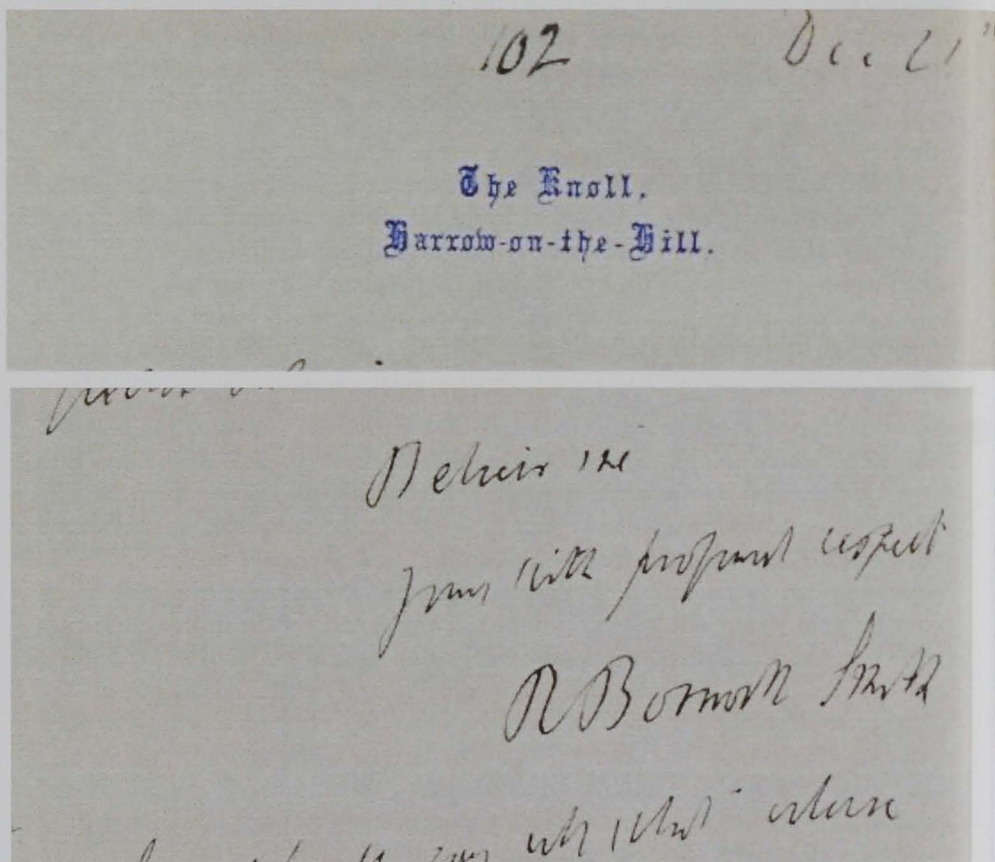 102 Dec. 21
The Knoll.
Harrow-on-the-Hill.
Believe me
Yours with profound respect
R Bosworth Smith